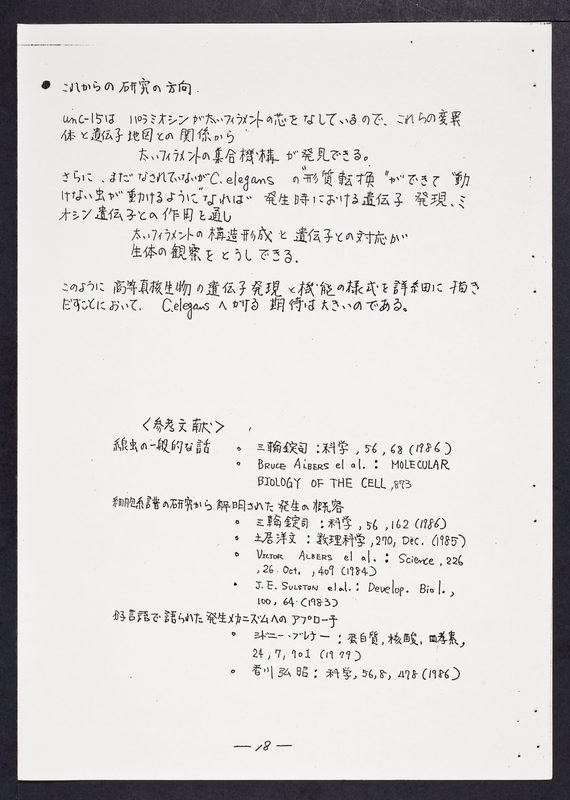 ● これからの研究の方向.
unc-15は パラミオシンが太いフィラメントの芯をなしているので、これらの変異
体と遺伝子地図との関係から
太いフィラメントの集合機構 が発見できる。
さらに、まだなされていないがC.elegans の"形質転換"ができて "動
けない虫が動けるように"なれば 発生時における遺伝子 発現、ミ
オシン遺伝子との作用を通し
太いフィラメントの構造形成と遺伝子との対応が
生体の観察をとうしできる.
このように 高等真核生物の遺伝子発現と機能の様式を詳細に描き
だすことにおいて、 C.elegans へかける 期待は大きいのである。
〈参考文献〉
線虫の一般的な話 ◦ 三輪錠司:科学,56,68(1986)
◦ BRUCE AlBERS el al.: MOLECULAR
BIOLOGY OF THE CELL,873
細胞系譜の研究から解明された発生の概容
◦ 三輪錠司:科学,56,162(1986)
◦ 土居洋文:数理科学,270,Dec.(1985)
◦ VICTOR ALBERS el al.: Science,226
,26.Oct.,409(1984)
• J.E.SULSTON elal.: Develop. Biol.,
100,64.(1983)
分子言語で語られた発生メカニズムへのアプローチ
◦ シドニー・ブレナー:蛋白質,核酸,酵素,
24,7,901(1979)
◦ 香川弘昭:科学,56,8,478(1986)
— 18 —